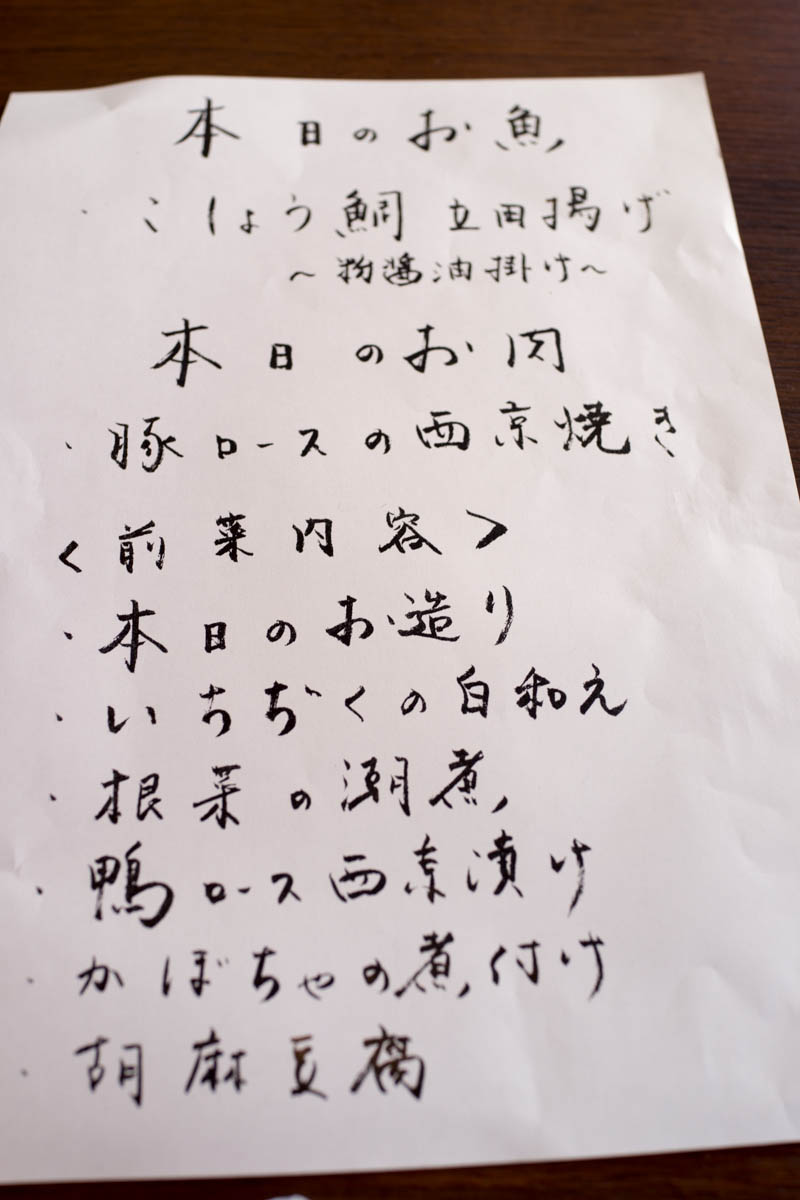 本日のお魚
・こしょう鯛立田揚げ
～粉醤油掛け～
本日のお肉
・豚ロースの西京焼き
<前菜内容>
・本日のお造り
・いちぢくの白和え
・根菜の潮煮
・鴨ロース西京漬け
・かぼちゃの煮付け
・胡麻豆腐